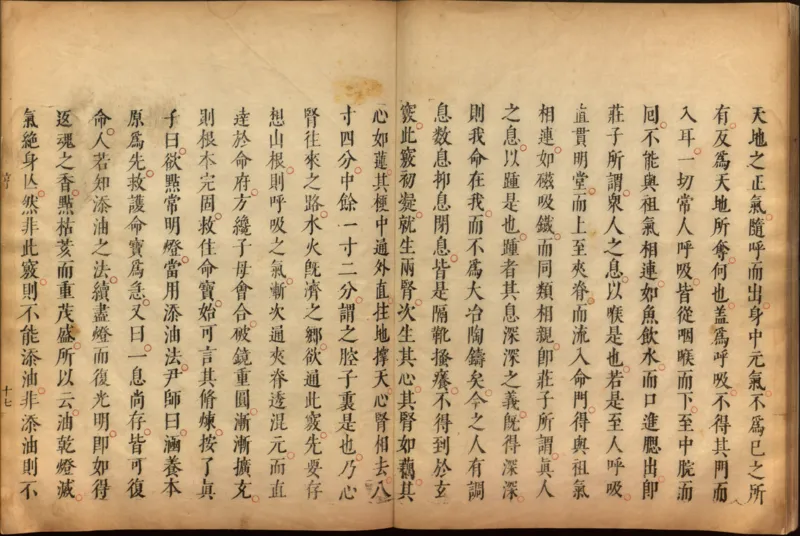 天地之正氣隨呼而出身中元氣不爲已之所
有反爲天地所奪何也盖爲呼吸不得其門而
入耳一切常人呼吸皆從咽喉而下至中脘而
回不能與祖氣相連如魚飲水而口進腮出即
莊子所謂衆人之息以喉是也若是至人呼吸
直貫明堂而上至夾脊而流入命門得與祖氣
相連如磁吸鐵而同類相親即莊子所謂眞人
之息以踵是也踵者其息深深之義旣得深深
則我命在我而不爲大冶陶鑄矣今之人有調
息数息抑息閉息皆是隔靴搔癢不得到於玄
竅此竅初凝就生兩腎次生其心其腎如藕其
心如蓮其梗中通外直拄地撑天心腎相去八
寸四分中餘一寸二分謂之腔子裏是也乃心
腎徃來之路水火旣濟之鄉欲通此竅先要存
想山根則呼吸之氣漸次通夾脊透混元而直
逹於命府方纔子母會合破鏡重圓漸漸擴充
則根本完固救住命寶始可言其修煉按了眞
子曰欲點常明燈當用添油法尹師曰涵養本
原爲先救護命寶爲急又曰一息尚存皆可復
命人若知添油之法續盡燈而復光明即如得
返魂之香點枯荄而重茂盛所以云油乾燈滅
氣絶身亡然非此竅則不能添油非添油則不
十七